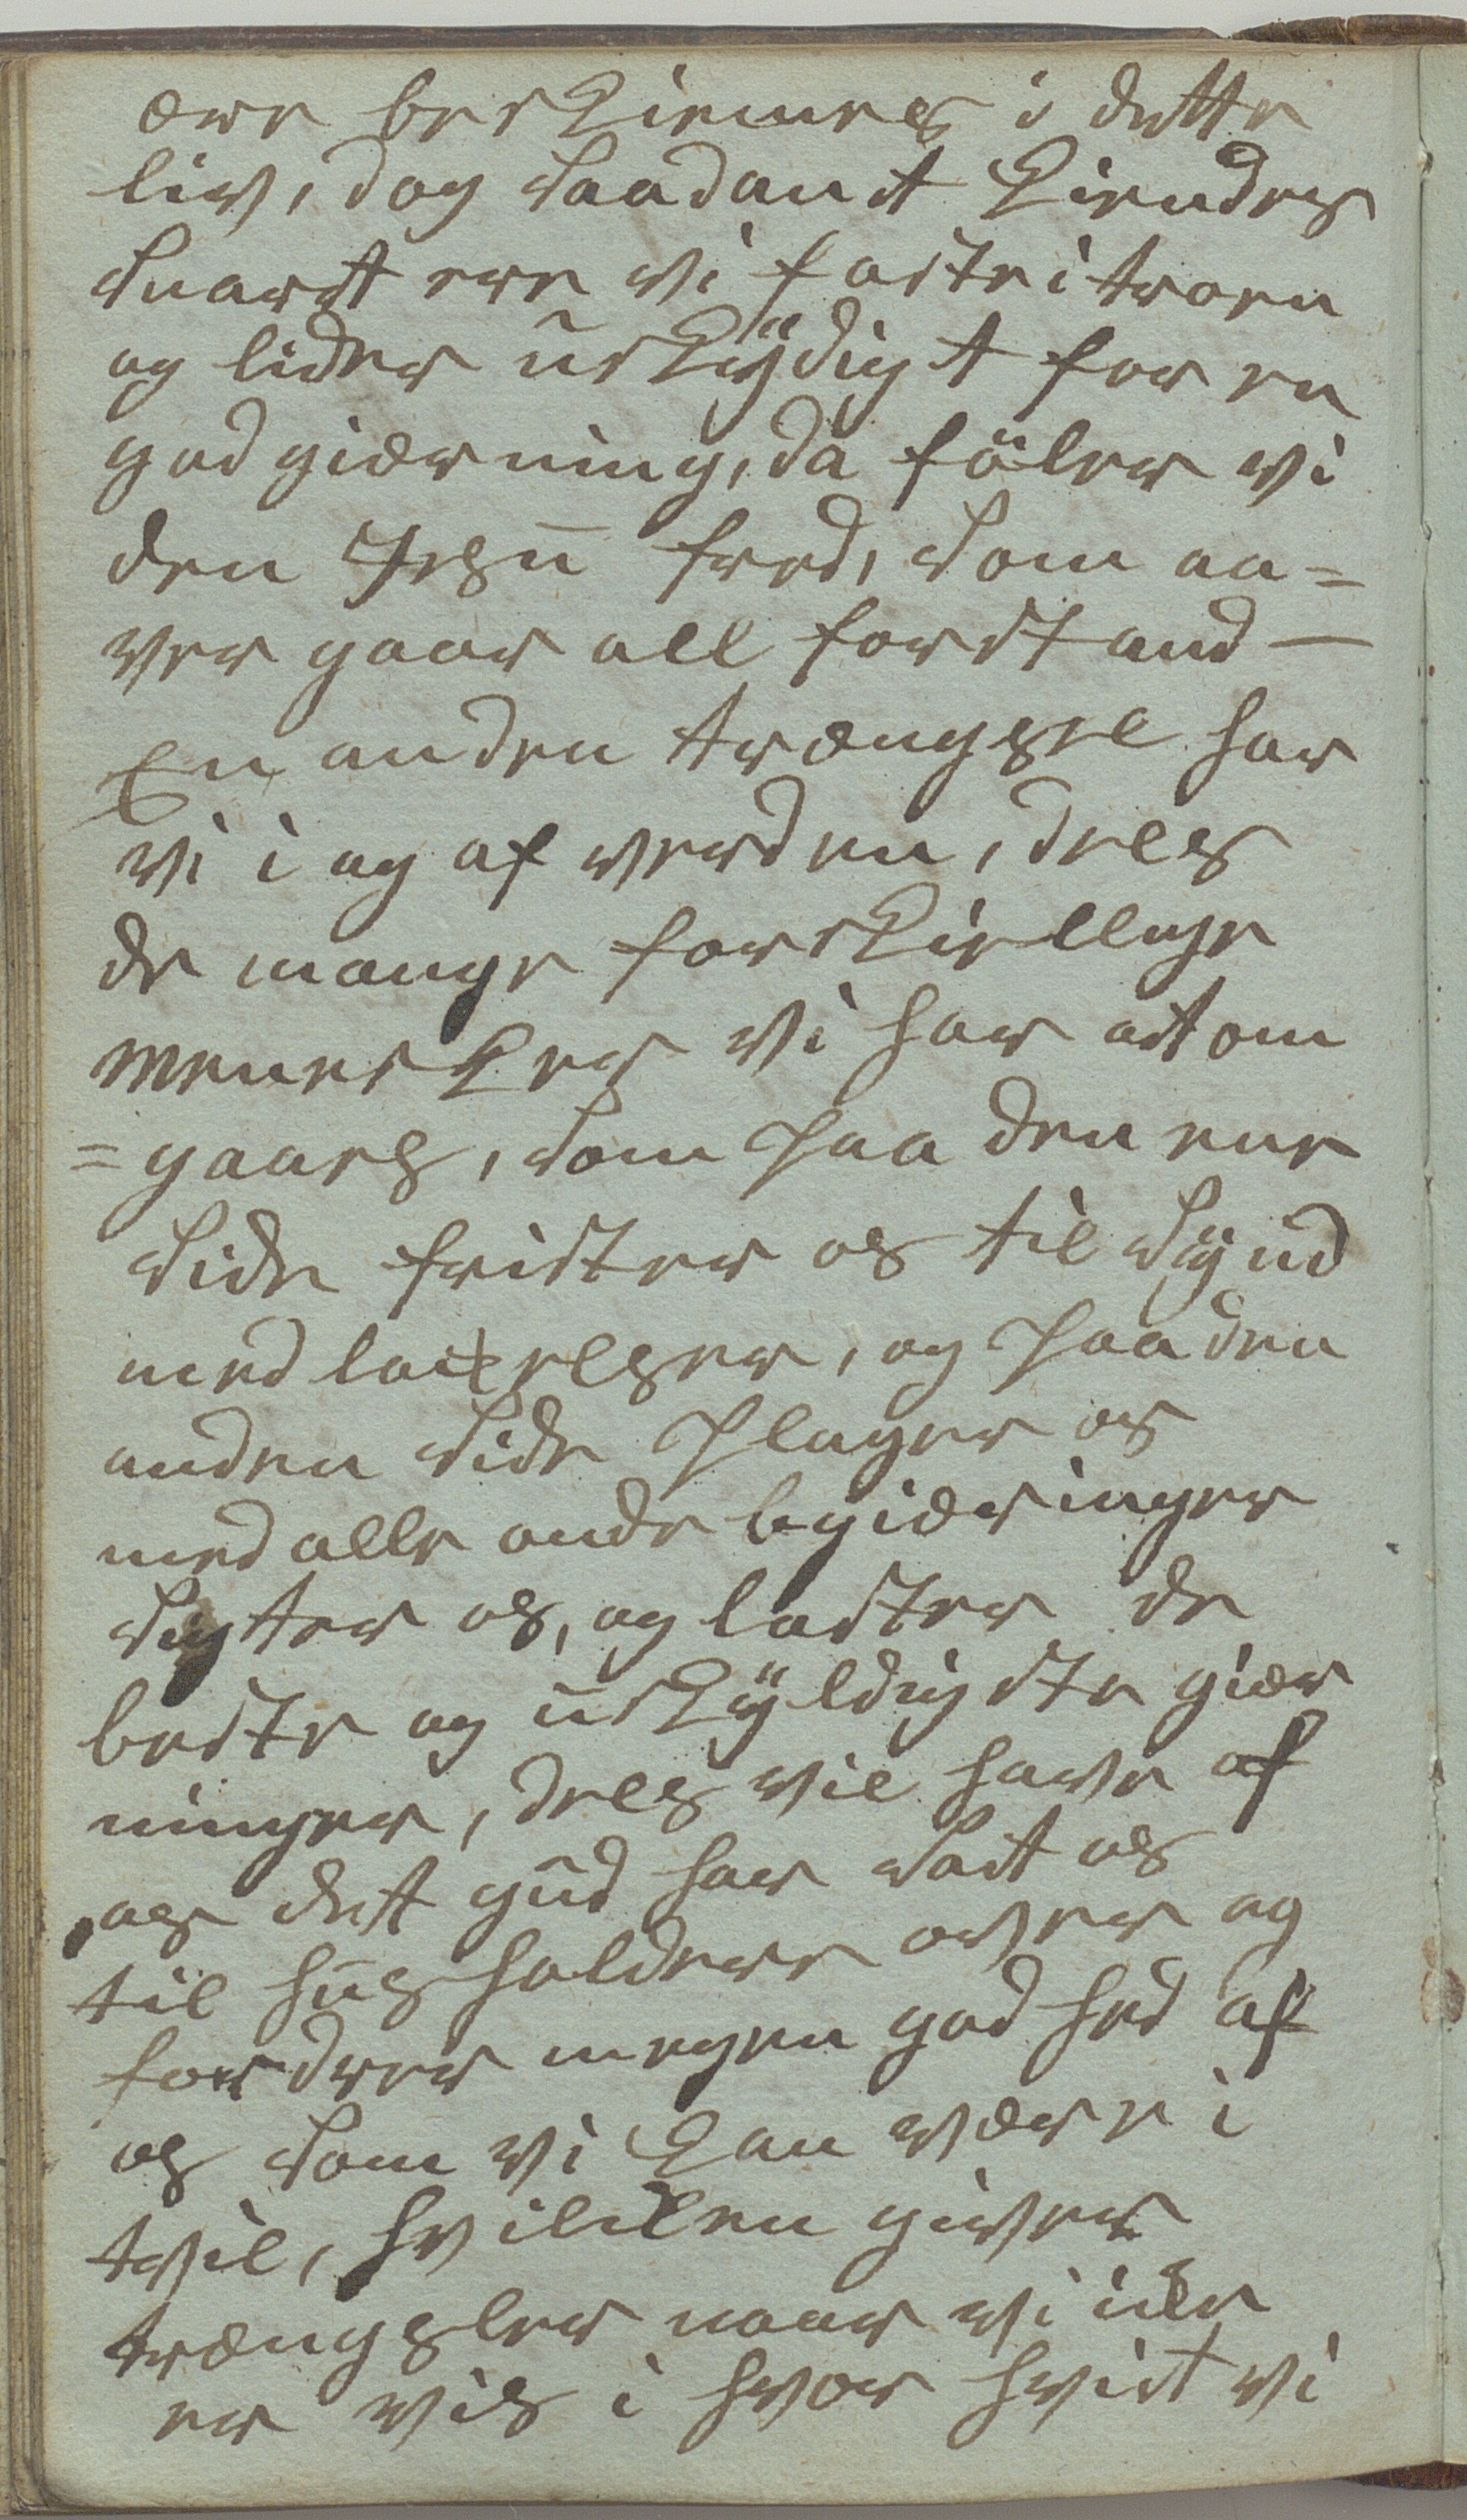 ære beskiemes i dette
liv, dog saadant kiendes
snart ere vi faste i troen
og lider uskÿldigt for en
god giærning, da föler vi
den Jesu fred, som aa=
ver gaar all forstand —
En anden trængsel har
vi i og af verden, dels
de mange forskiellige
Mennesker vi har at om
=gaaes, som paa den ene
side frister os til Sÿnd
med lokkelser, og paa den
anden side plager os
med alle onde begiæringer
sigter os, og laster de
beste og uskÿldigste giær
ninger, dels vil have af
os det gud har sat os
til husholdere over og
fordrer megen god hed af
os som vi kan være i
tvil, hvilken giver
trængsler naar vi ikke
er vis i hvor hvidt vi